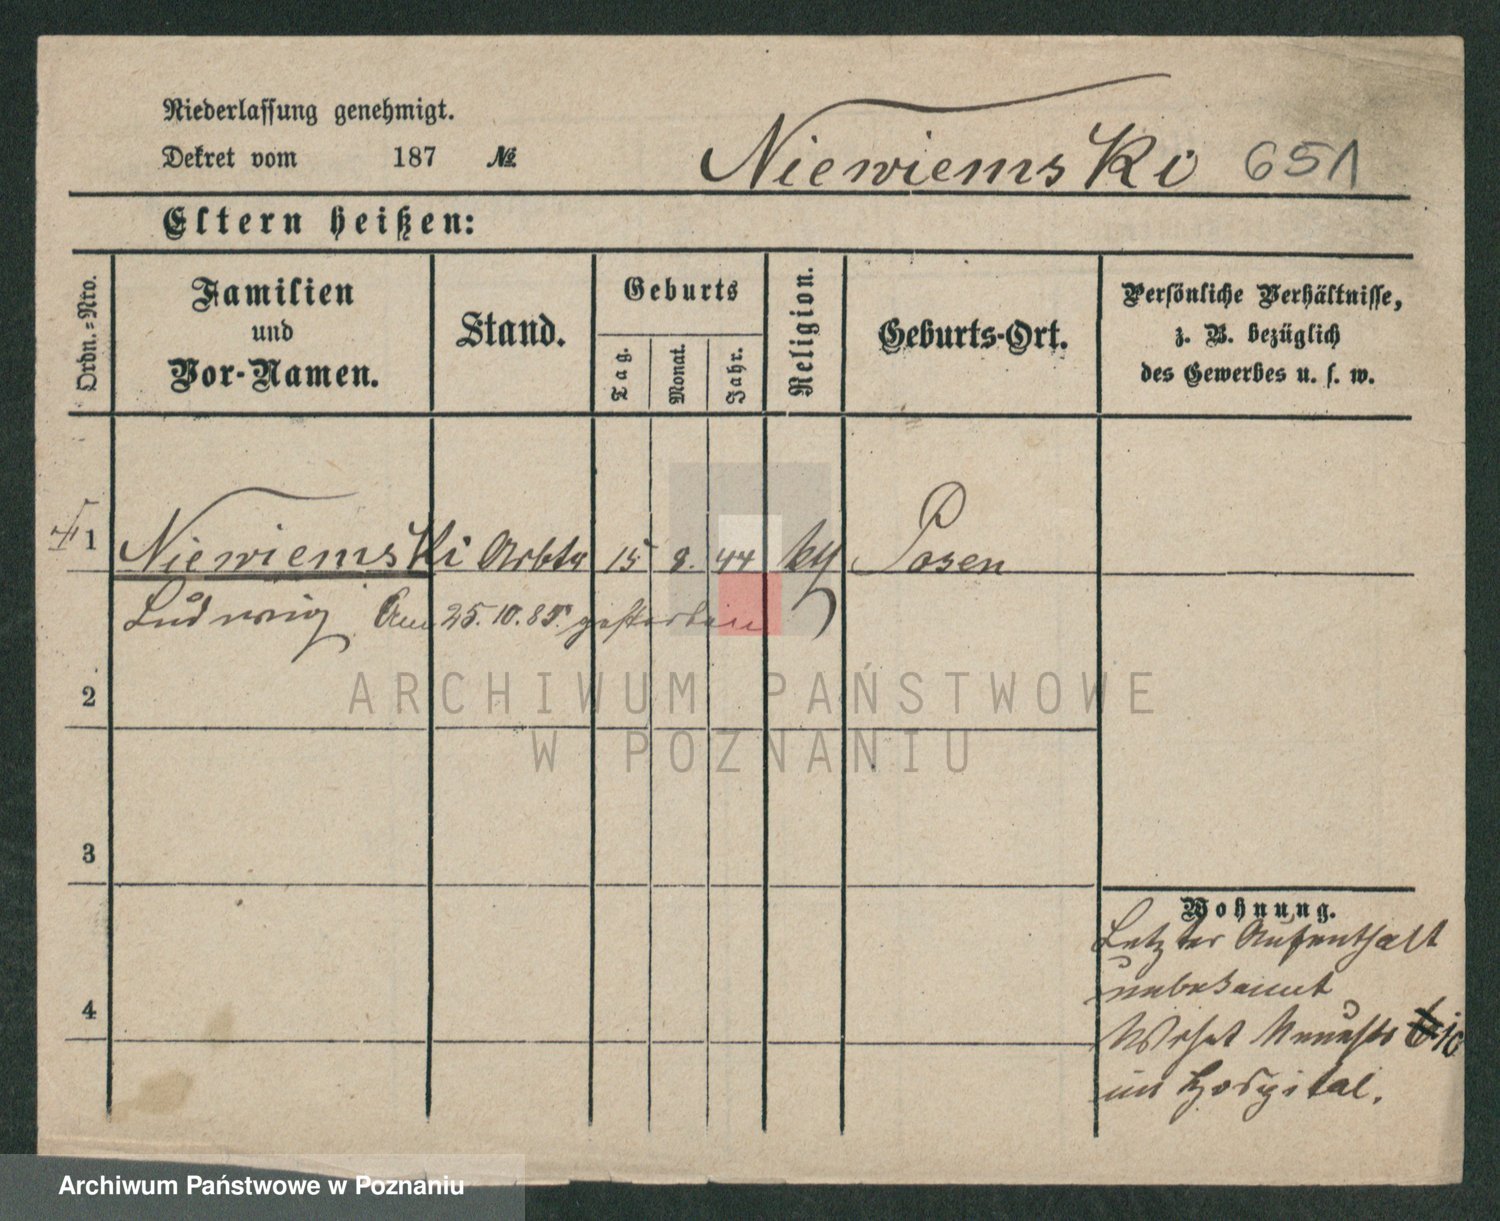 Niederlassung genehmigt.
Dekret vom 187 №
Niewiemski 651
Eltern heißen:
Ordn.=Nro.
Familien
und
Vor-Namen.
Stand.
Geburts
Tag.
Monat.
Jahr.
Religion.
Geburts-Ort.
Persönliche Verhältnisse,
z. B. bezüglich
des Gewerbes u. s. w.
1 Niewiemski Arbtr 15 8. 44 kth Posen
Ludwig Am 25.10.85. gestorben
2
3
4
Wohnung.
Letzter Aufenthalt
unbekannt
Wohnt 10
im Hospital.
ARCHIWUM PAŃSTWOWE
W POZNANIU
Archiwum Państwowe w Poznaniu